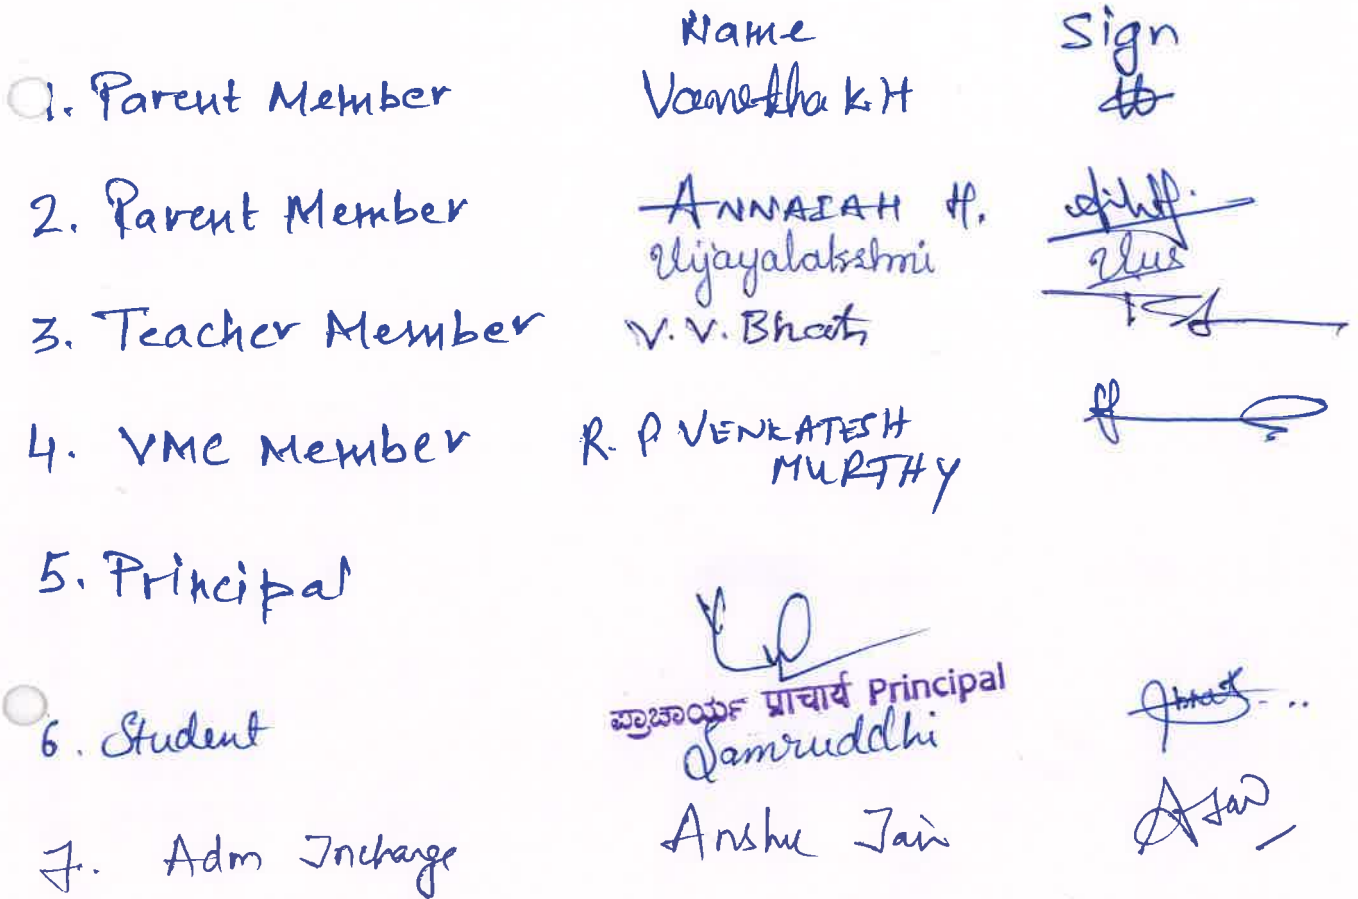 Name Sign
1. Parent Member K H
2. Parent Member ANNAIAH H.
Vijayalakshmi
3. Teacher Member V. V. Bhat
4. VMC Member R. P VENKATESH
MURTHY
5. Principal
ಪ್ರಾಚಾರ್ಯ प्राचार्य Principal
6. Student Samruddhi
7. Adm Incharge Anshu Jain